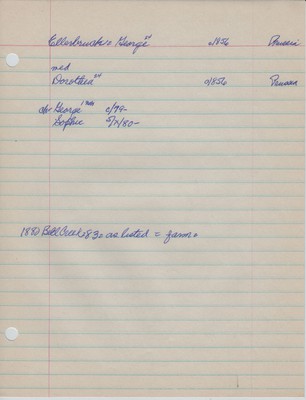 Ellerbrucke, George 24 c/1856 Prussia
md
Dorothea 24 c/1856 Prussia
ch George 1 c/79-
Sophie 5/2/80-
1880 Bell Creek 830 as listed = farm